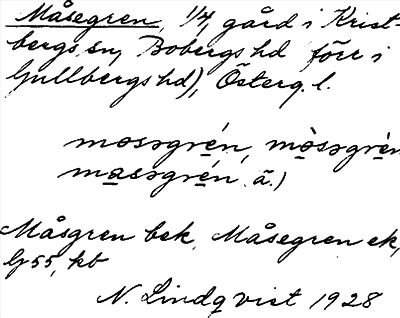 Måsegren, 1/4, gård i Krist-
bergs sn, Bobergs hd (förr i
Gullbergs hd), Österg. l.
mosəgrén, mòsəgrèn
masəgrén. ä.)
Måsgren bek, Måsegren ek,
lj 55, kb
N. Lindqvist 1928